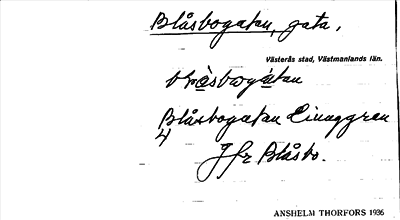 Blåsbogatan, gata.
Västerås stad, Västmanlands län.
Blåsbogatan Linaggren
4
Jfr Blåsbo.
ANSHELM THORFORS 1936